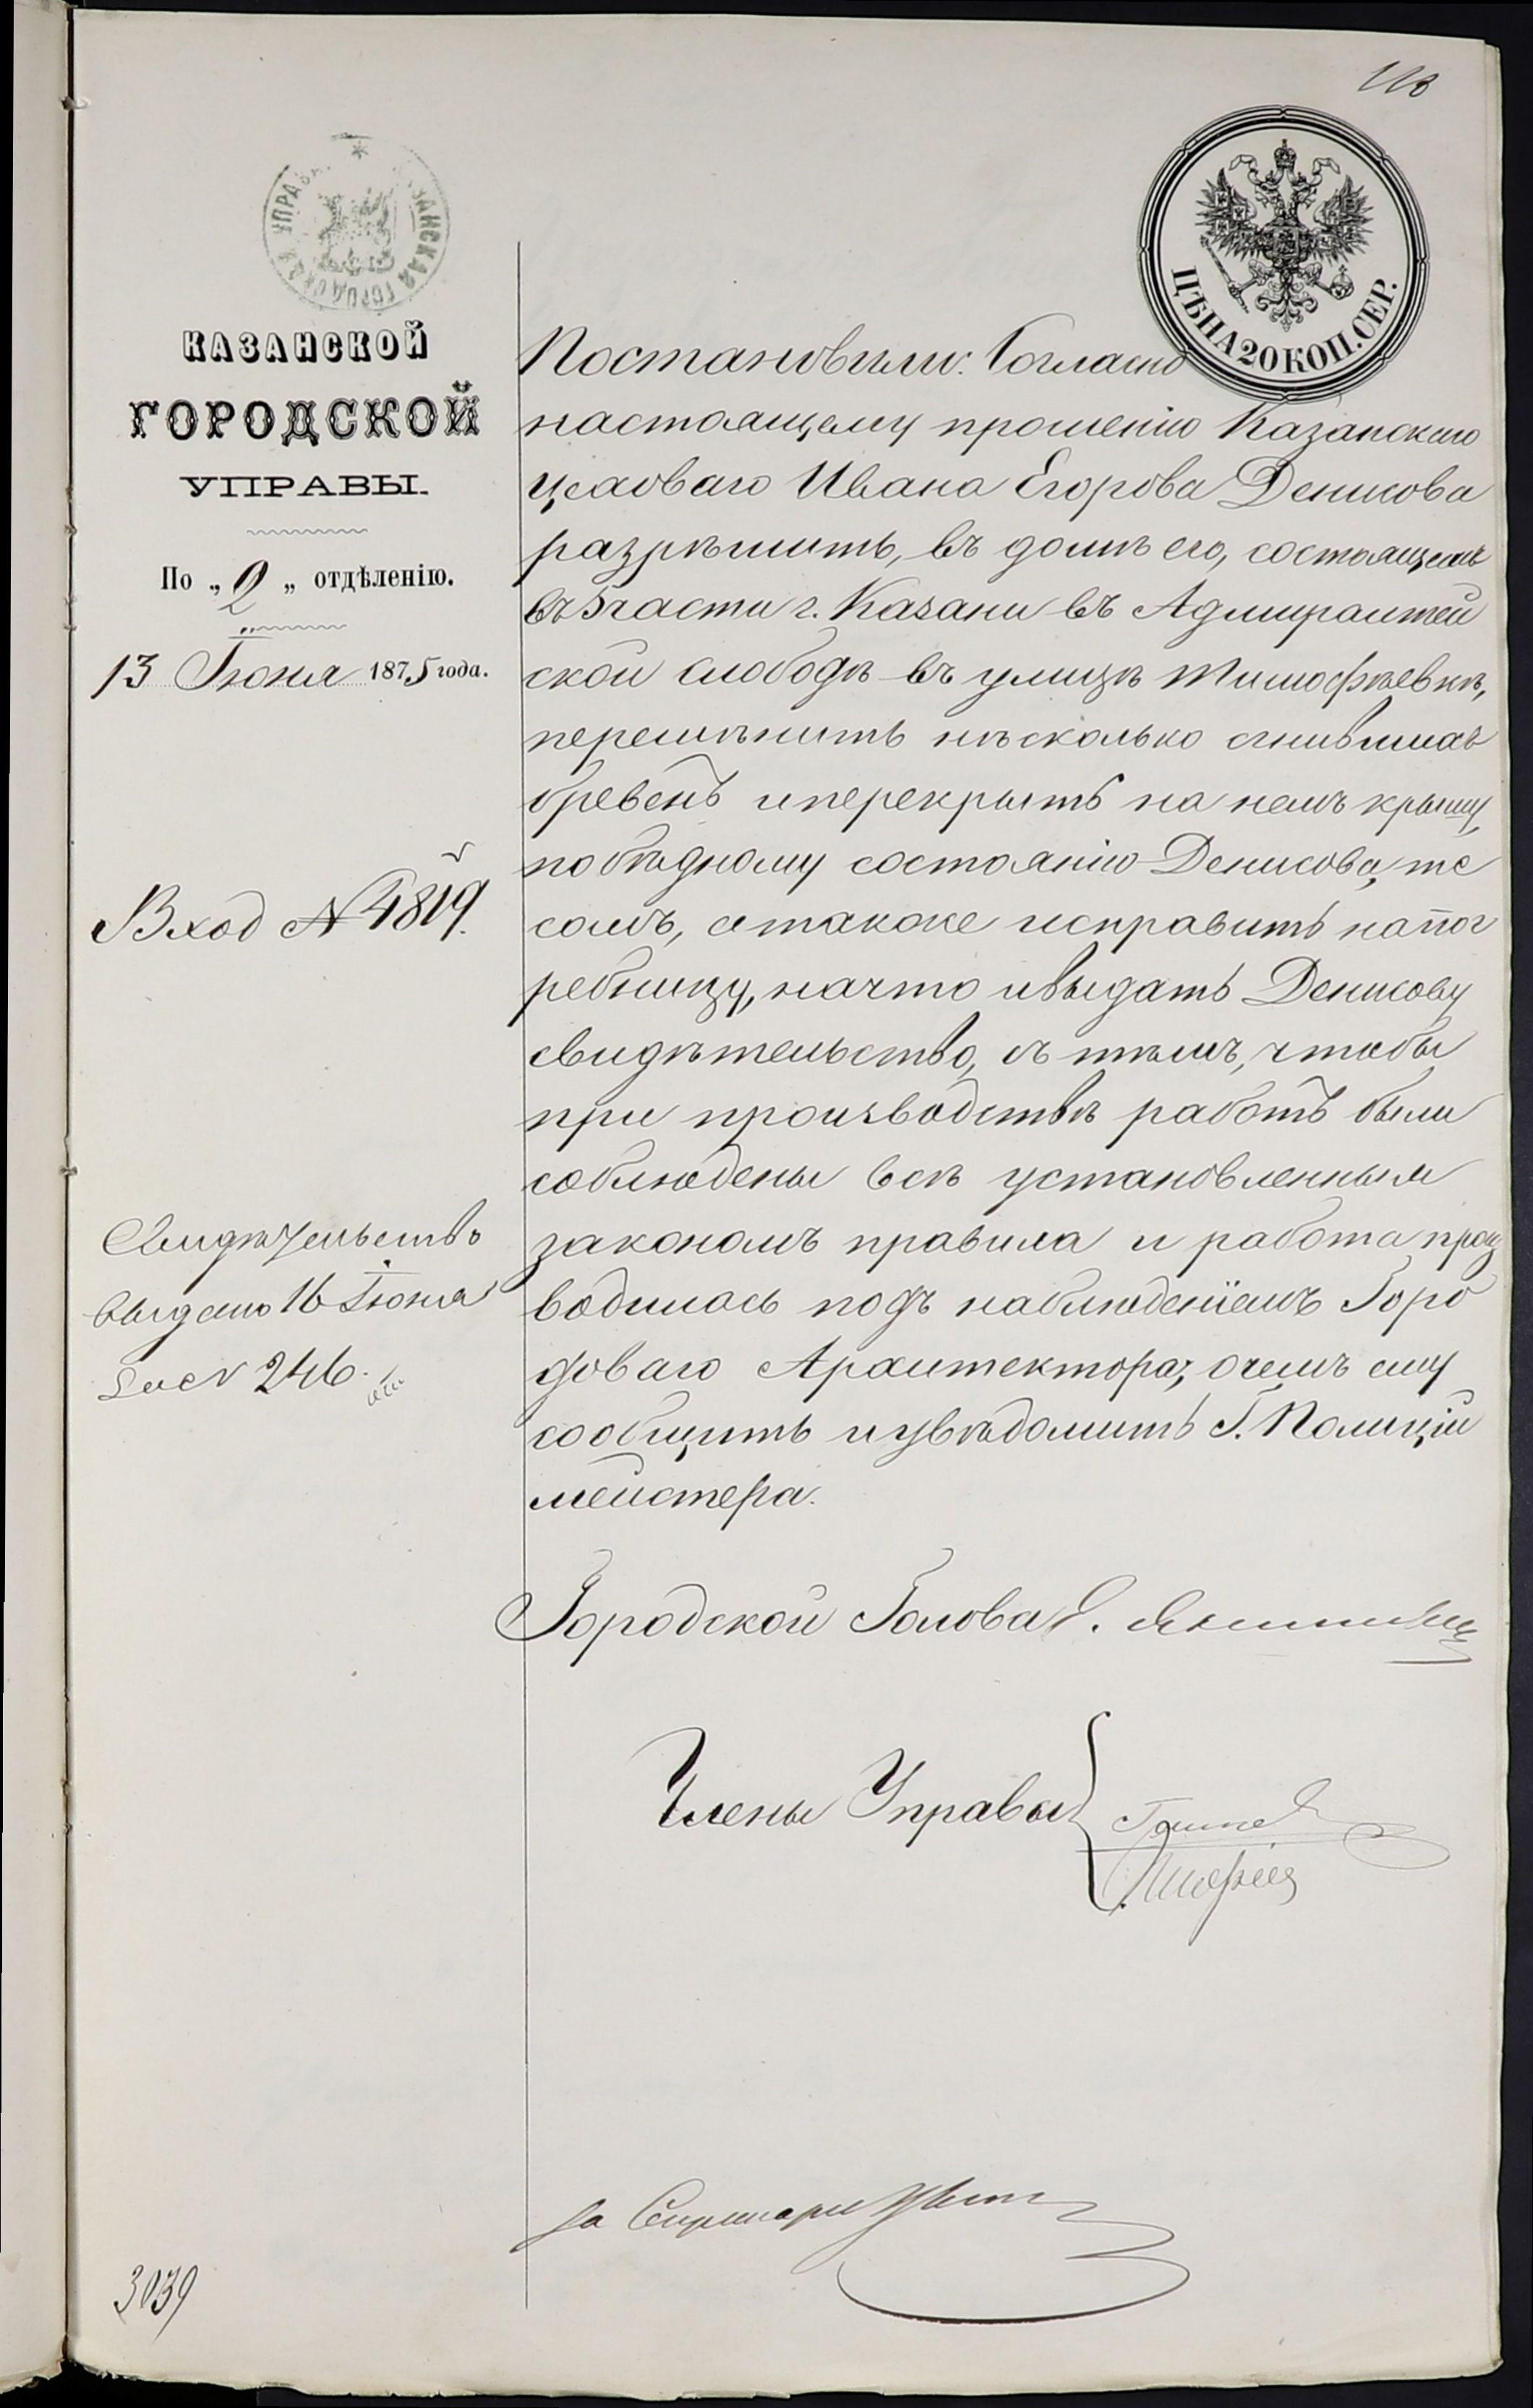 113
КАЗАНСКАЯ ГОРОДСКАЯ УПРАВА
ЦѢНА 20 КОП. СЕР.
КАЗАНСКОЙ
ГОРОДСКОЙ
УПРАВЫ.
По „2„ отдѣленію.
13 Іюня 1875 года.
Вход № 4819.
Свидѣтельство
выдано 16 Іюня
за № 246.
3039
Постановили: Согласно
настоящему прошенію Казанскаго
цеховаго Ивана Егорова Денисова
разрѣшить, въ домѣ его, состоящемъ
въ 5 части г. Казани въ Адмиралтей
ской слободѣ въ улицѣ Тимофѣевкѣ,
перемѣнить нѣсколько сгнившихъ
бревенъ и перекрыть на немъ крышу,
по бѣдному состоянію Денисова, те
сомъ, а также исправить напог
ребницу, на что и выдать Денисову
свидѣтельство, съ тѣмъ, чтобы
при производствѣ работъ были
соблюдены всѣ установленныя
закономъ правила и работа произ
водилась подъ наблюденіемъ Горо
доваго Архитектора, о чемъ ему
сообщить и увѣдомить Г. Полицій
мейстера.
Городской Голова Э. Янишевскій
Члены Управы
за Секретаря